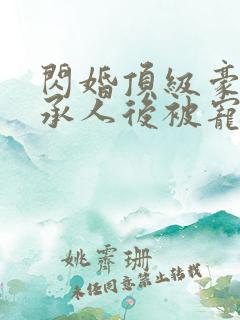 閃婚頂級豪
承人後被寵
姚霽珊
未任同意禁止轉載